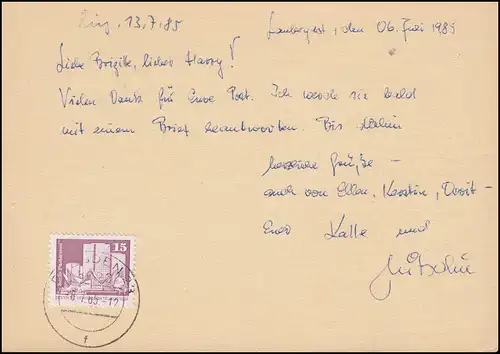 Eing. 13.7.85
Laubergast, den 06. Juli 1985
Liebe Brigitte, lieber Harry!
Vielen Dank für Eure Post. Ich werde sie bald
mit einem Brief beantworten. Bis dahin
herzliche Grüße –
auch von Ellen, Kerstin, Dorit –
Euer Kalle und
15
DRESDEN
-12
f